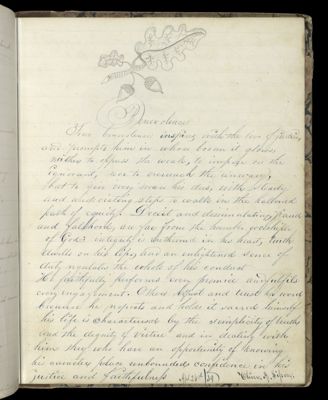 Benevolence
True benevolence inspires with the love of justice,
and prompts him in whose bosom it glows
neither to oppress the weak, to impose on the
ignorant, nor to overreach the unwary;
but to give every man his due, with steady
and undeviating steps to walk in the hallowed
path of equity. Deceit and dissimulation, fraud
and falsehood, are far from the
of God's integrity is enthroned in his heart, truth
dwells on his lips, and an enlightened sense of
duty regulates the whole of his conduct
He faithfully performs every promise and fulfils
every engagement. Others and trust his word
because he respects and holds it sacred himself
his life is characterised by the simplicity of truth
and the dignity of virtue and in dealing with
him they who have an opportunity of knowing
his character place unbounded confidence in his
justice and faithfulness